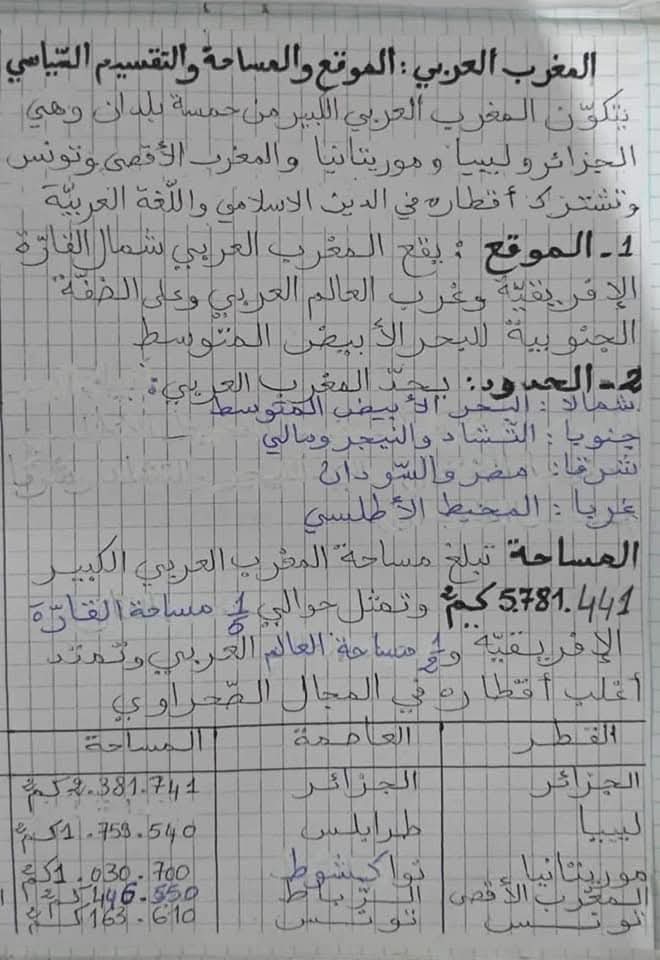 المغرب العربي : الموقع والمساحة والتقسيم السّياسي
يتكوّن المغرب العربي الكبير من خمسة بلدان وهي
الجزائر وليبيا وموريتانيا والمغرب الأقصى وتونس
وتشترك أقطاره في الدين الاسلامي واللّغة العربيّة
1 - الموقع : يقع المغرب العربي شمال القارّة
الإفريقيّة وغرب العالم العربي وعلى الضفّة
الجنوبية للبحر الأبيض المتوسط
2 - الحدود : يحدّ المغرب العربي :
شمالا : البحر الأبيض المتوسط
جنوبا : التّشاد والنيجر ومالي
شرقا : مصر والسّودان
غربا : المحيط الأطلسي
المساحة تبلغ مساحة المغرب العربي الكبير
5.781.441 كم² وتمثل حوالي 1/5 مساحة القارّة
الإفريقيّة و 1/2 مساحة العالم العربي وتمتد
أغلب أقطاره في المجال الصّحراوي
القطر العاصمة المساحة
الجزائر الجزائر 2.381.741 كم²
ليبيا طرابلس 1.759.540 كم²
موريتانيا نواكشوط 1.030.700 كم²
المغرب الأقصى الرّباط 446.550 كم²
تونس تونس 163.610 كم²